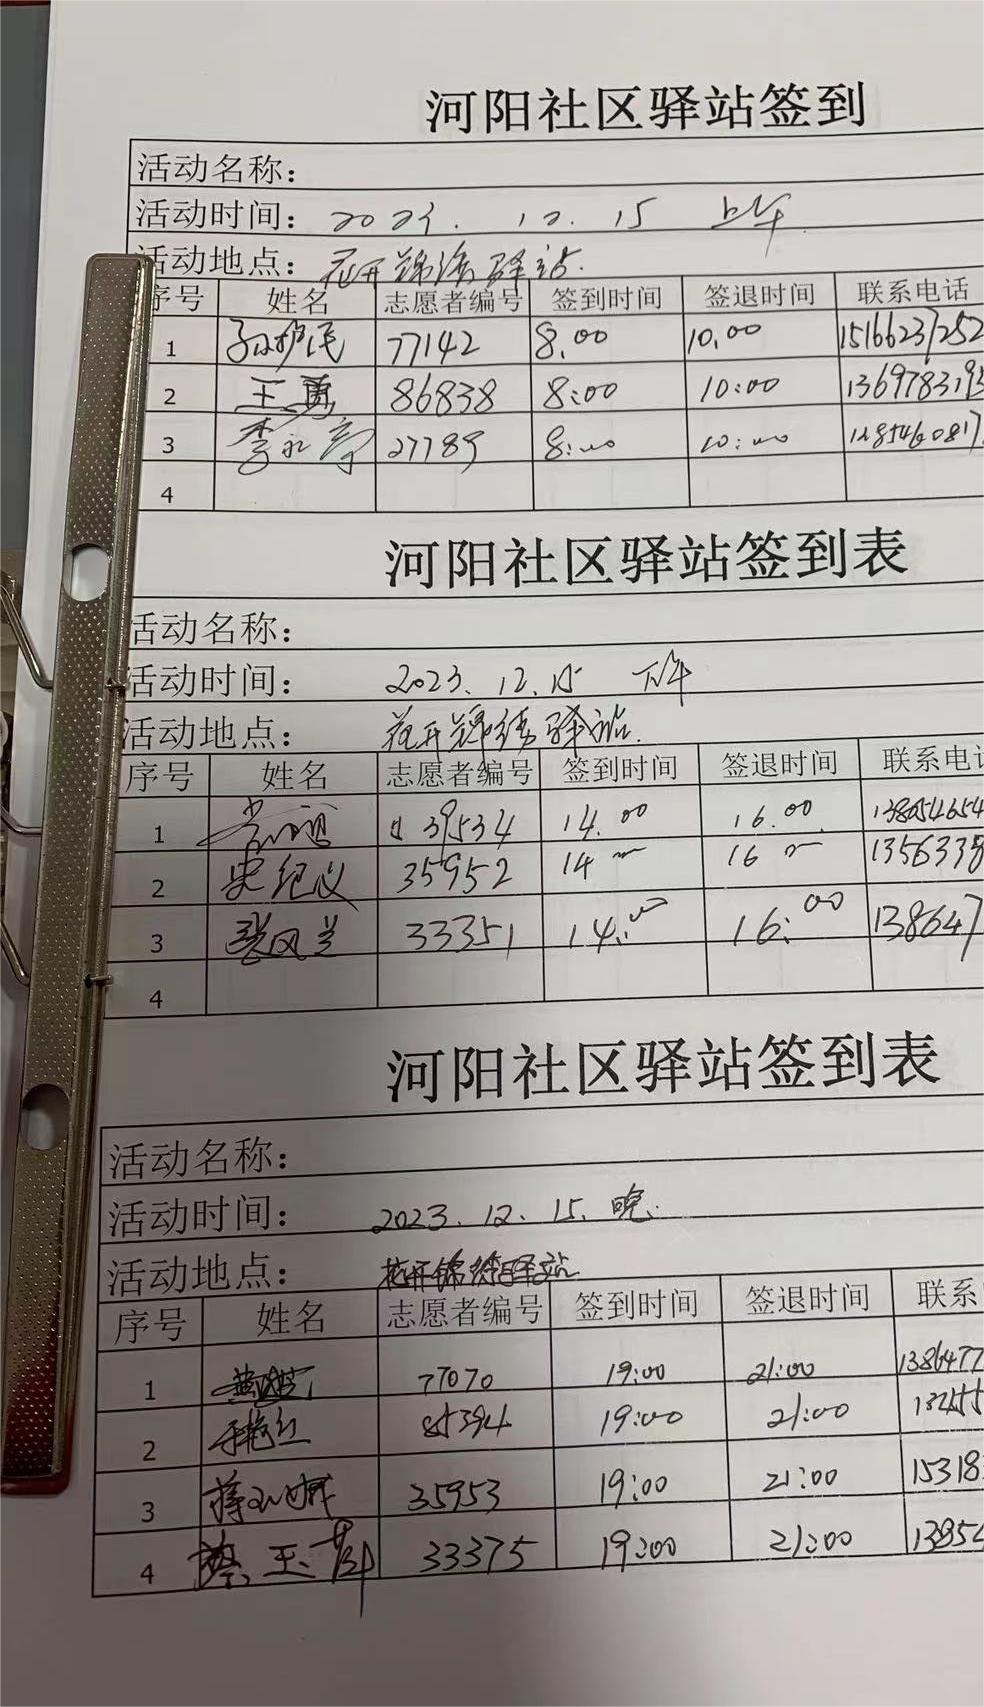 河阳社区驿站签到
活动名称：
活动时间： 2023. 12. 15 上午
活动地点： 花开锦绣驿站.
序号 姓名 志愿者编号 签到时间 签退时间 联系电话
1 孙护民 77142 8.00 10.00 15166237252
2 王勇 86838 8:00 10:00 1369783195
3 李 27789 8:00 10:00
4
河阳社区驿站签到表
活动名称：
活动时间： 2023. 12. 15 下午
活动地点： 花开锦绣驿站.
序号 姓名 志愿者编号 签到时间 签退时间 联系电话
1 39534 14.00 16.00 138054654
2 史纪义 35952 14 00 16 00 1356338
3 张风兰 33351 14:00 16:00 138647
4
河阳社区驿站签到表
活动名称：
活动时间： 2023. 12. 15. 晚.
活动地点： 花开锦绣驿站
序号 姓名 志愿者编号 签到时间 签退时间 联系
1 77070 19:00 21:00 1386477
2 于艳红 85394 19:00 21:00
3 35953 19:00 21:00 15318
4 蔡玉 33375 19:00 21:00 13854